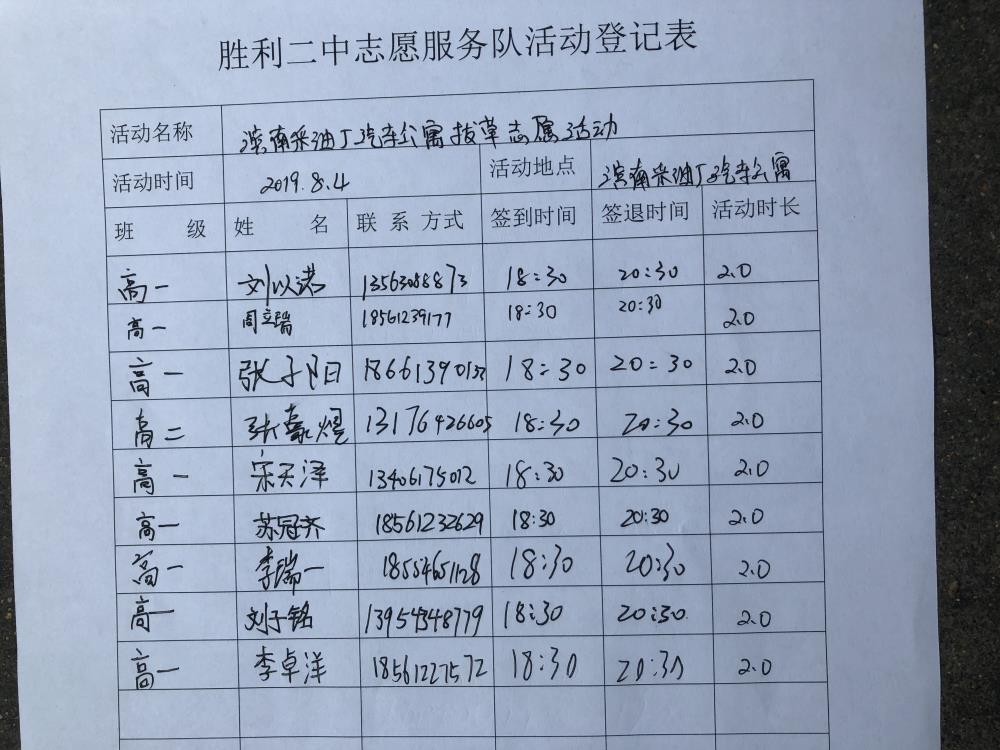 胜利二中志愿服务队活动登记表
活动名称 滨南采油厂汽车公寓拔草志愿活动
活动时间 2019.8.4 活动地点 滨南采油厂汽车公寓
班 级 姓 名 联系方式 签到时间 签退时间 活动时长
高一 刘以诺 13563088873 18:30 20:30 2.0
高一 周立瑞 18561239177 18:30 20:30 2.0
高一 张子阳 18661390137 18:30 20:30 2.0
高二 张豪煜 13176426605 18:30 20:30 2.0
高一 宋天泽 13406175012 18:30 20:30 2.0
高一 苏冠齐 18561232629 18:30 20:30 2.0
高一 李瑞一 18554651128 18:30 20:30 2.0
高一 刘子铭 13954348779 18:30 20:30 2.0
高一 李卓洋 18561227572 18:30 20:30 2.0